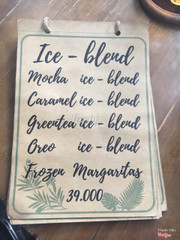 Ice - blend
Mocha ice - blend
Caramel ice - blend
Greentea ice - blend
Oreo ice - blend
Frozen Margaritas
39.000